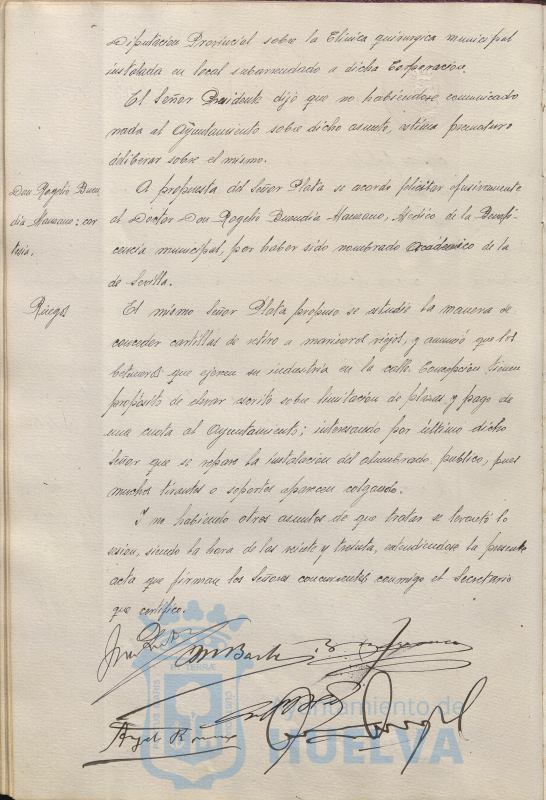 Diputación Provincial sobre la Clínica quirurgica municipal
instalada en local subarrendado a dicha Corporación.
El Señor Presidente dijo que no habiendose comunicado
nada al Ayuntamiento sobre dicho asunto, estima prematuro
deliberar sobre el mismo.
Don Rogelio Buen
dia Manzano: cor
tesia.
A propuesta del Señor Plata se acordo felicitar efusivamente
al Doctor Don Rogelio Buendia Manzano, Médico de la Benefi
cencia municipal, por haber sido nombrado Académico de la
de Sevilla.
Ruegos
El mismo Señor Plata propuso se estudie la manera de
conceder cartillas de retiro a marineros viejos, y anunció que los
betuneros que ejercen su industria en la calle Concepcion tienen
propósito de elevar escrito sobre limitacion de plazas, y pago de
una cuota al Ayuntamiento; interesando por último dicho
señor que se repare la instalacion del alumbrado publico, pues
muchos tirantes o soportes aparecen colgando.
Y no habiendo otros asuntos de que tratar se levantó la
sesion, siendo la hora de las veinte y treinta, extendiendose la presente
acta que firman los Señores concurrentes conmigo el Secretario
que certifico.
Ayuntamiento de
HUELVA